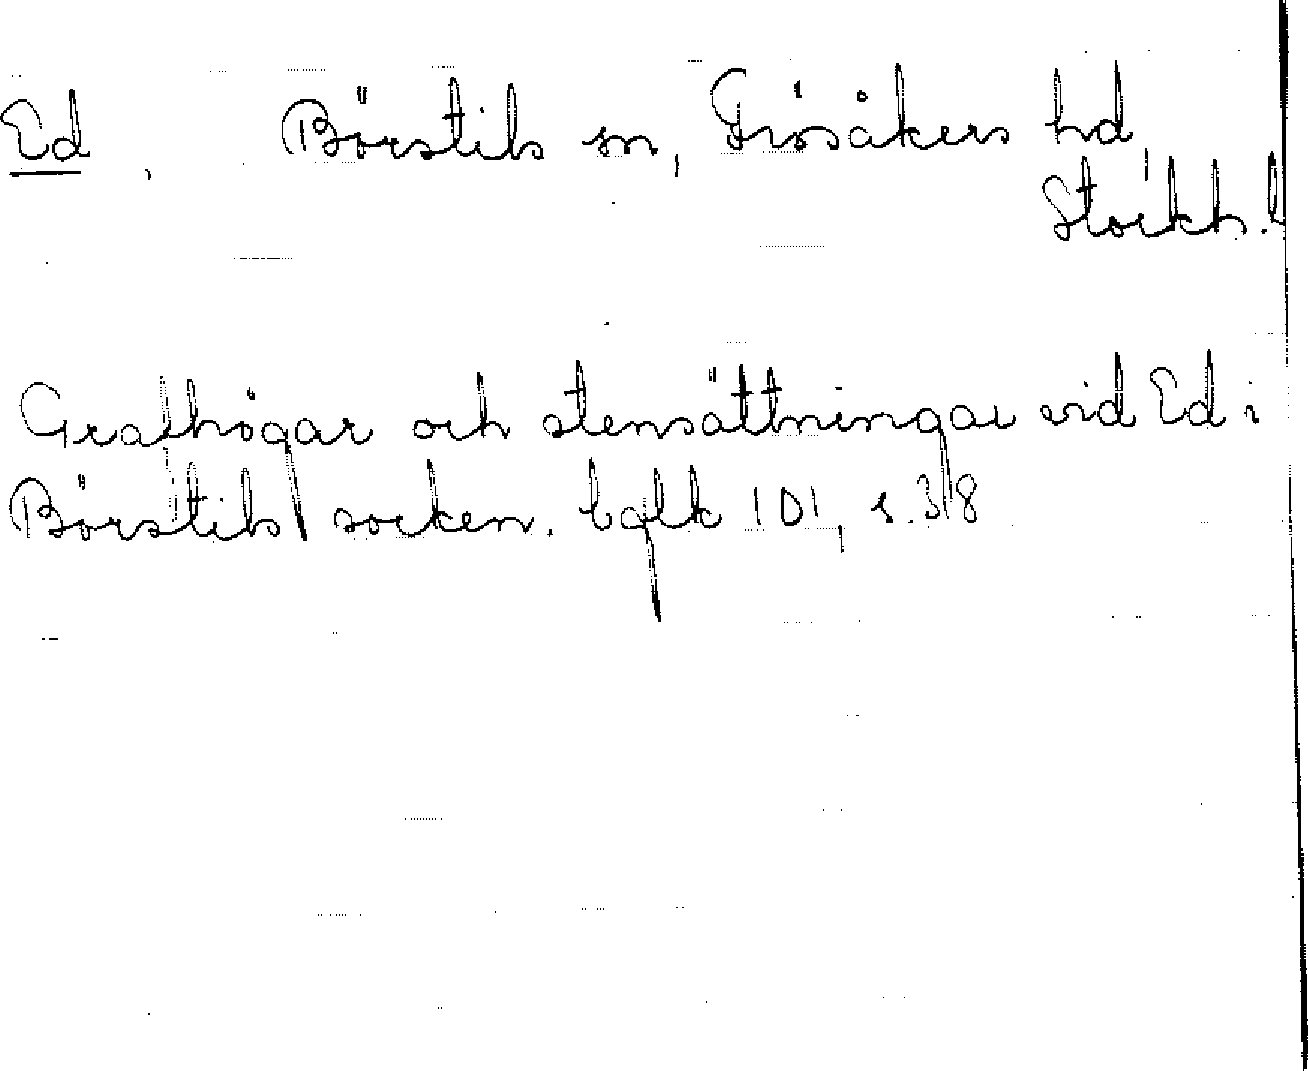 Ed, Börstils sn, Frösåkers hd,
Stockh. l
Gravhögar och stensättningar vid Ed i
Börstils socken. Eqlk 101, s. 38